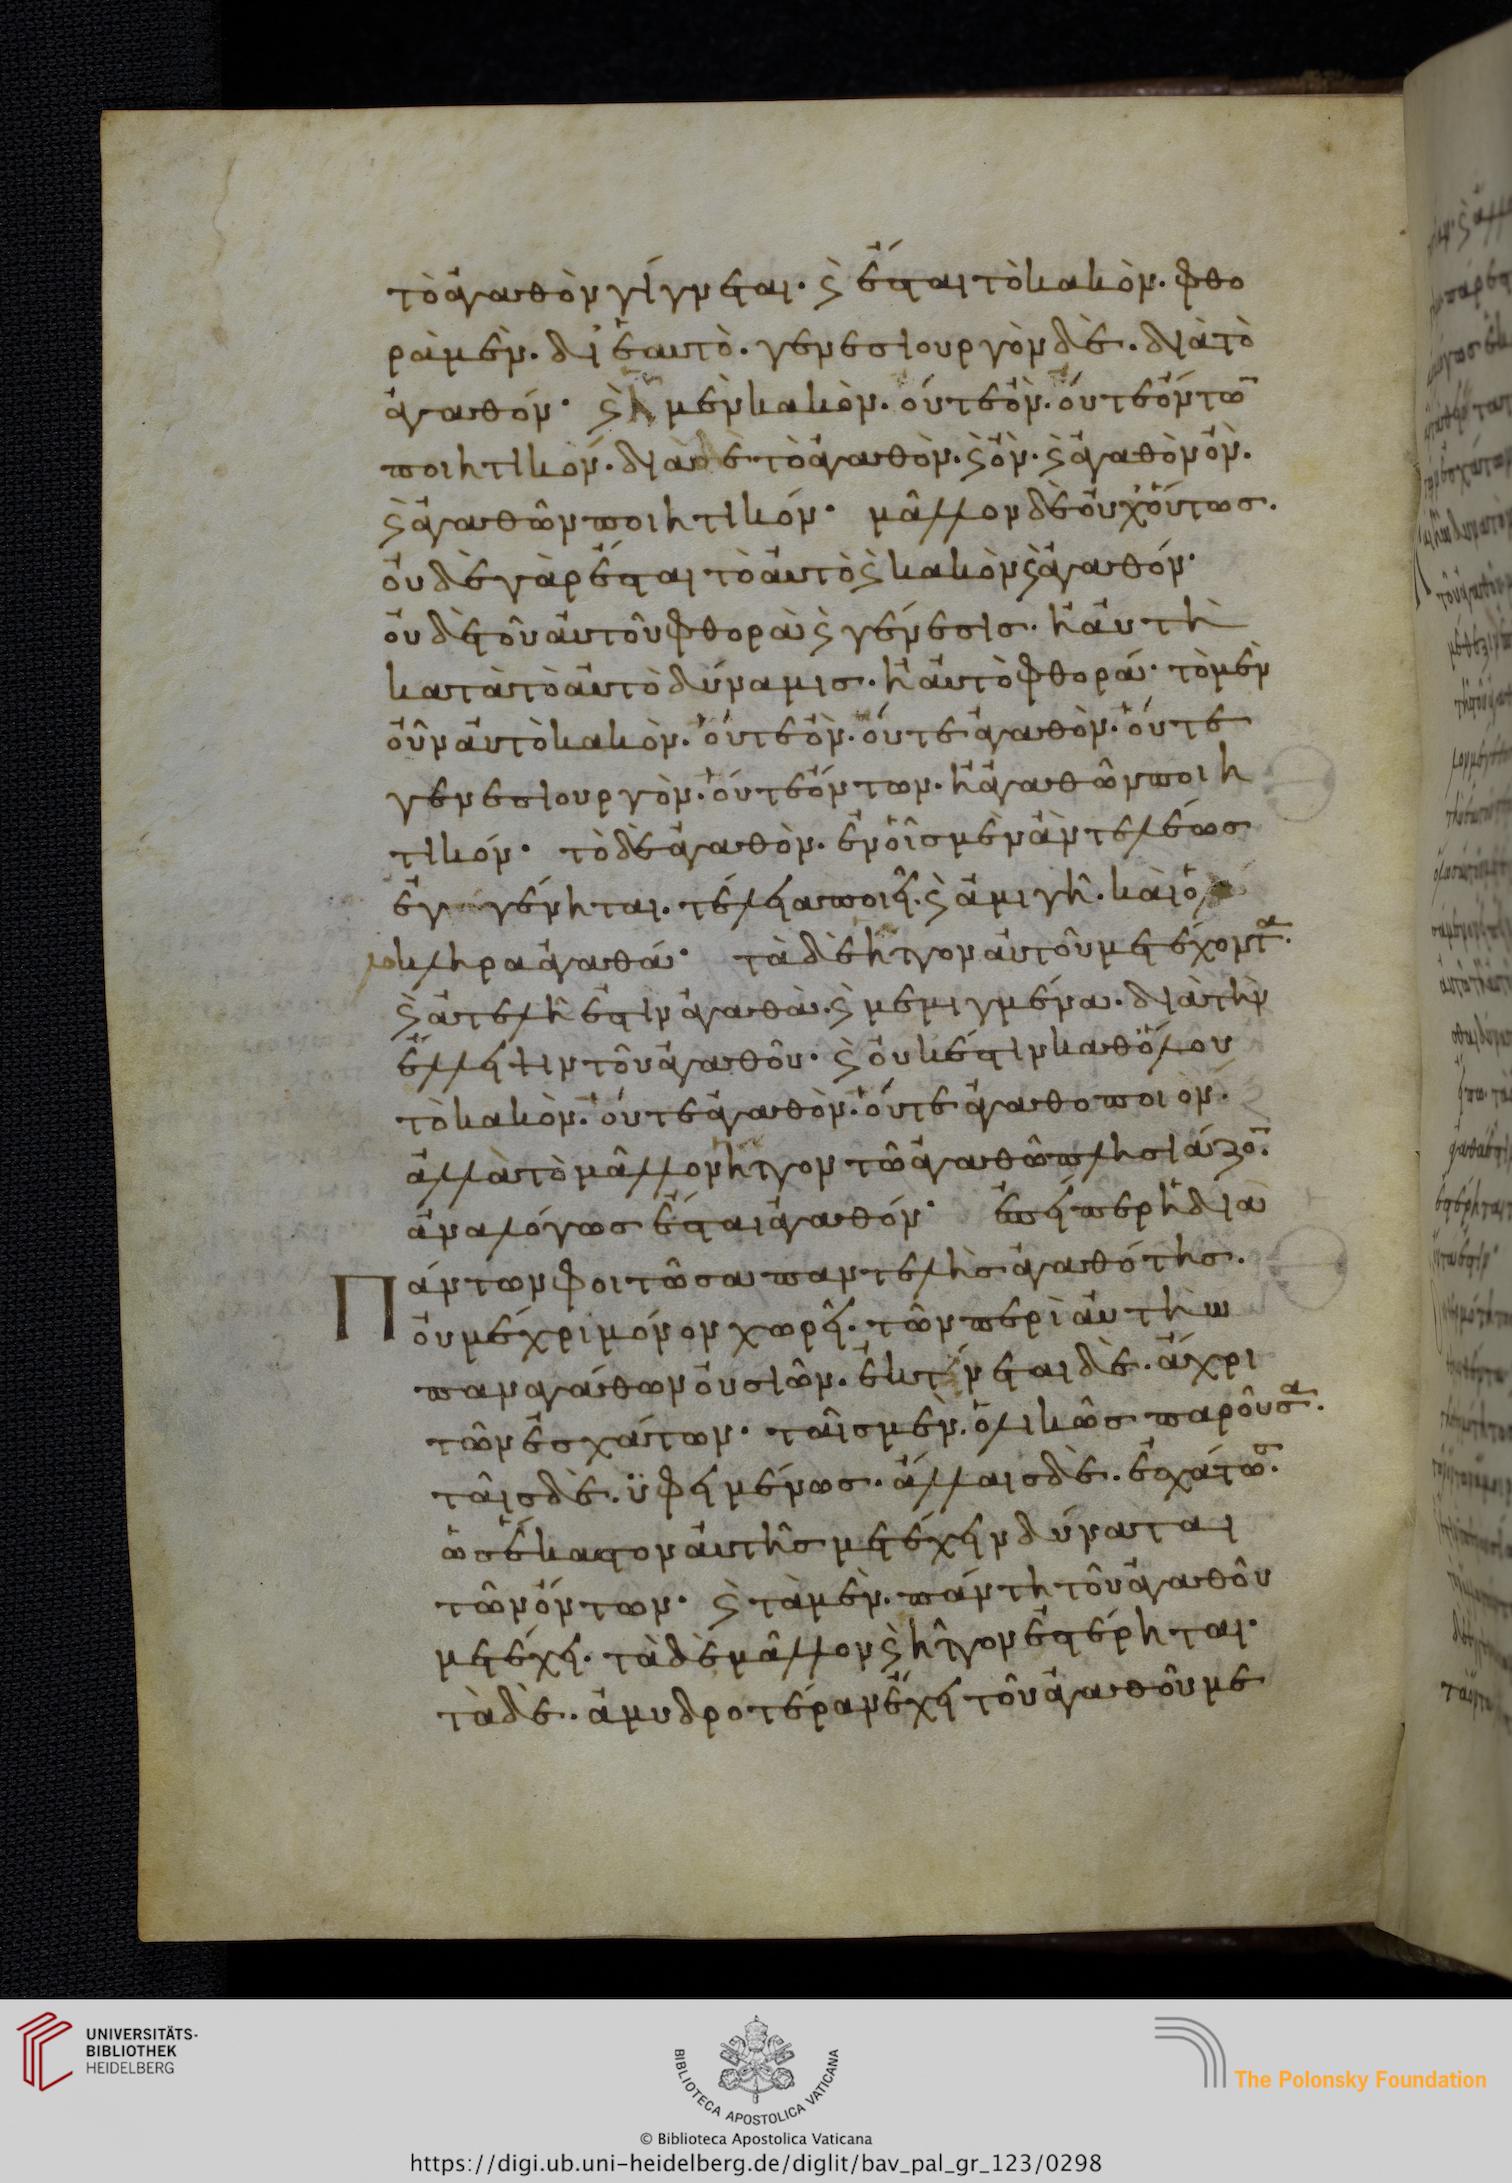 τὸ ἀγαθὸν γίγνεται· ϛ̀ ἔσται τὸ κακὸν· φθο
ρὰ μὲν· δι ἑαυτὸ· γενεσιουργὸν δὲ· διὰ τὸ
ἀγαθόν· ϛ̀ ἧ μὲν κακὸν· οὔτε ὂν· οὔτε ὄντω
ποιητικὸν· διὰ δὲ τὸ ἀγαθὸν· ϛ̀ ὂν· ϛ̀ ἀγαθὸν ὂν·
ϛ̀ ἀγαθῶν ποιητικόν· μᾶλλον δὲ οὐχ οὕτως·
οὐδὲ γὰρ ἔσται τὸ αὐτὸ ϛ̀ κακὸν ϛ̀ ἀγαθόν·
οὐδὲ τοῦ αὐτοῦ φθορὰ ϛ̀ γένεσις· ἢ αὐτὴ
κατὰ τὸ αὐτὸ δύναμις· ἢ αὐτὸ φθορά· τὸ μὲν
οὖν αὐτὸ κακὸν· οὔτε ὂν· οὔτε ἀγαθὸν· οὔτε
γενεσιουργὸν· οὔτε ὄντων· ἢ ἀγαθῶν ποιη
τικόν· τὸ δὲ ἀγαθὸν· ἐν οἷς μὲν ἂν τελέως
ἐγγένηται· τέλεια ποιεῖ· ϛ̀ ἀμιγῆ· καὶ ὁλό
κληρα ἀγαθά· τὰ δὲ ἧττον αὐτοῦ μετέχοντα·
ϛ̀ ἀτελῆ ἐστὶν ἀγαθὰ· ϛ̀ μεμιγμένα· διὰ τὴν
ἔλλειψιν τοῦ ἀγαθοῦ· ϛ̀ οὐκ ἔστιν καθόλου
τὸ κακὸν· οὔτε ἀγαθὸν· οὔτε ἀγαθοποιὸν·
ἀλλὰ τὸ μᾶλλον ἧττον τῶ ἀγαθῶ πλησιάζο·
ἀναλόγως ἔσται ἀγαθόν· ἐπείπερ ἡ διὰ
Πάντων φοιτῶσα παντελὴς ἀγαθότης·
οὐ μέχρι μόνον χωρεῖ· τῶν περὶ αὐτὴ ω
παναγάθων οὐσιῶν· ἐκτείνεται δὲ· ἄχρι
τῶν ἐσχάτων· ταῖς μὲν· ὁλικῶς παροῦσα·
ταῖς δὲ· ὑφειμένως· ἄλλαις δὲ· ἐσχάτως·
ὡς ἕκαστον αὐτῆς μετέχειν δύναται
τῶν ὄντων· ϛ̀ τὰ μὲν· πάντη τοῦ ἀγαθοῦ
μετέχει· τὰ δὲ μᾶλλον ϛ̀ ἧττον ἐστέρηται·
τὰ δὲ· ἀμυδροτέραν ἔχει τοῦ ἀγαθοῦ με
UNIVERSITÄTS-
BIBLIOTHEK
HEIDELBERG
BIBLIOTECA APOSTOLICA VATICANA
The Polonsky Foundation
© Biblioteca Apostolica Vaticana
https://digi.ub.uni-heidelberg.de/diglit/bav_pal_gr_123/0298